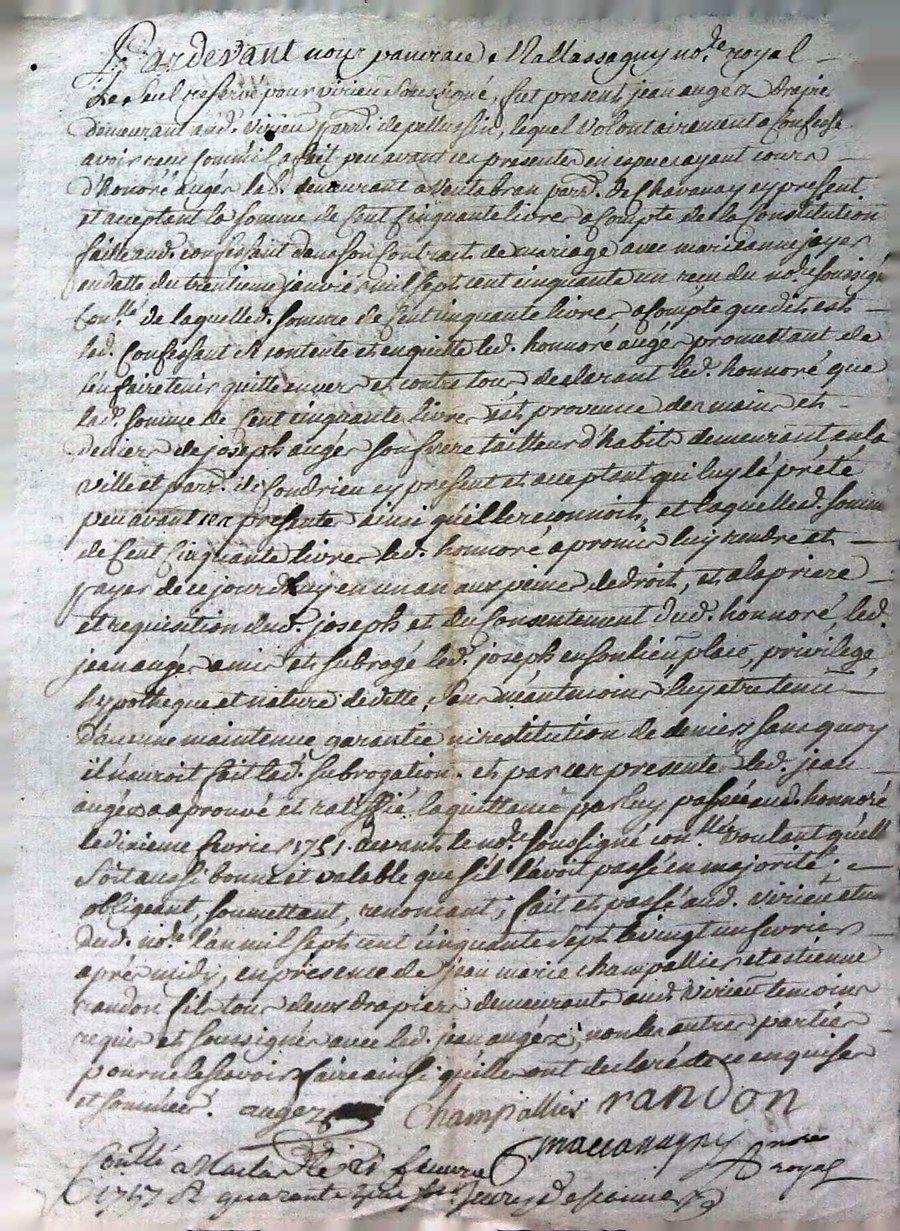 Pardevant nous pancrace Mallassagny no.re royal
Le Seul reservé pour virieu soussigné, fut present jean augez drapier
demeurant aud. virieu parr. de pellussin, lequel volontairement a confessé
avoir recu comme il a fait peu avant ces presentes en especes ayant cours
d'honoré augér lab.r demeurant a Ventabran parr. de Chavanay cy present
et acceptant la somme de Cent Cinquante livres a compte de la Constitution
faitte aud. confessant dans son Contrait de mariage avec marieanne jayer
en datte du trentieme janvier mil sept cent cinquante un recu du no.re soussigé
Con.llé de laquelle d. somme de Cent cinquante livres a Compte que dit est
led. Confessant ce contente et en quitte led. honnoré augé promettant de
l'en faire tenir quitte envers et contre tous declarant led. honnoré que
lad. somme de Cent cinquante livres est provenue des mains et
deniers de joseph augér son frere tailleur d'habits demeurant en la
ville et parr. de Condrieu cy present et acceptant qui luy l'a prété
peu avant ces presentes ainsi qu'il le reconnoit, et laquelle d. somme
de Cent Cinquante livres led. honnoré a promis luy rendre et
payer de ce jourdhuy en un an aux peines de droit, et a la priere
et requisition dud. joseph et du Consentement dud. honnoré, led.
jean augér a mis et subrogé led. joseph en son lieu, place, privilege
hypotheque et nature de dette, sans néantmoins luy etre tenu
d'aucune maintenue garantie ni restitution de deniers sans quoy
il n'auroit fait lad. subrogation. et par ces presentes led. jean
augéz a aprouvé et ratiffié la quittance par luy passée aud. honnoré
le dixieme fevrier 1751. devant le no.re soussigné con.llée voulant qu'elle
soit aussi bonne et valable que s'il l'avoit passé en majorité;
obligeant, soumettant, renoncant, fait et passé aud. virieu etude
dud. no.re l'an mil sept cent cinquante sept le vingt un fevrier
aprés midy, en présence de jean marie champallier et estienne
randon fils tous deux drapiers demeurants aud. virieu temoins
requis et soussignés avec led. jean augéz, non les autres parties
pour ne le scavoir faire ainsi qu'elle ont declaré de ce enquises
et sommées. augez Champallier randon
Mallassagny nore
royal
Con.llé a le fevrier
1757 R quarante